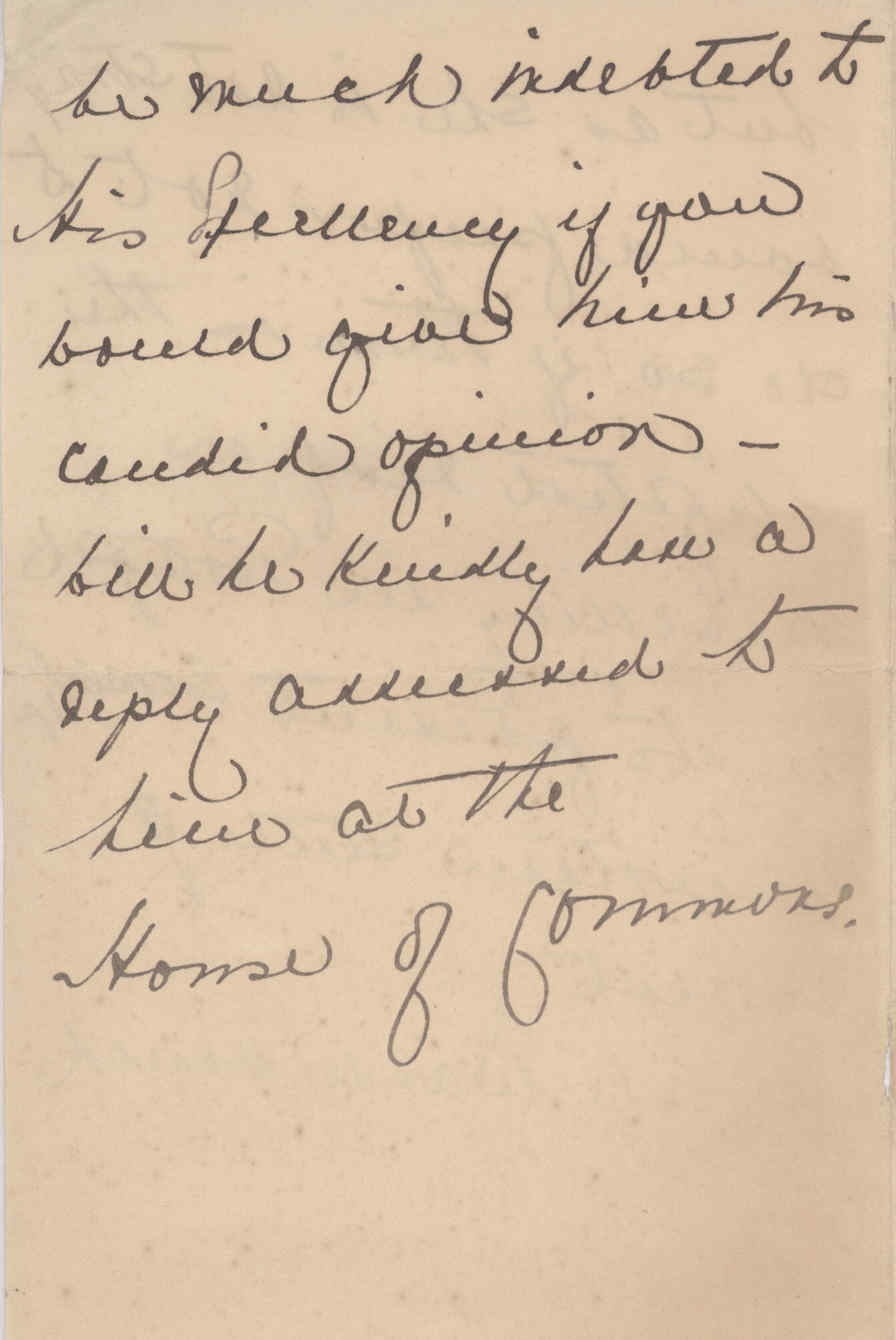 be much indebted to
His Excellency if you
would give him his
candid opinion –
will he kindly have a
reply addressed to
him at the
House of Commons.